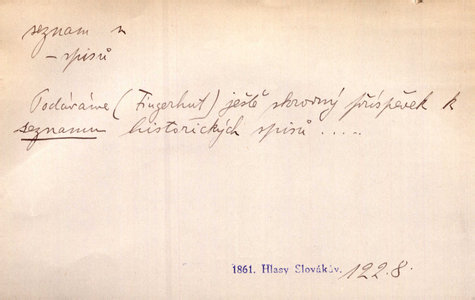 seznam
– spisů
Podáváme (Fingerhut) ještě skrovný příspěvek k
seznamu historických spisů .....
1861. Hlasy Slovákův. 122.8.